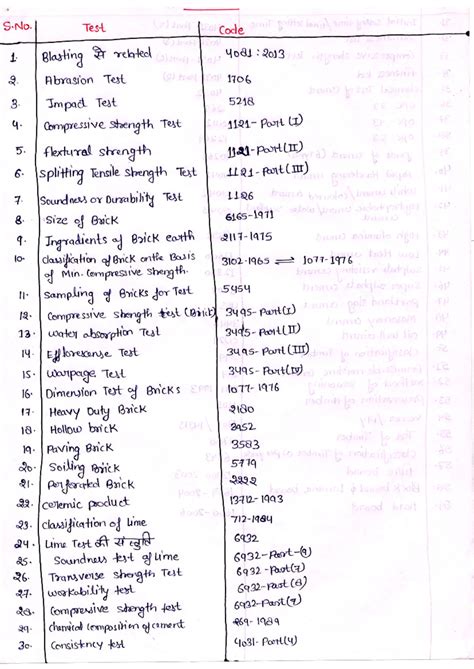 S.No. Test Code
1. Blasting से related 4081:2013
2. Abrasion Test 1706
3. Impact Test 5218
4. Compressive Strength Test 1121-Part(I)
5. flextural strength 1121-Part(II)
6. Splitting Tensile Strength Test 1121-Part(III)
7. Soundness or Durability Test 1126
8. Size of Brick 6165-1971
9. Ingradients of Brick earth 2117-1975
10. classification of Brick on the Basis
of Min. Compressive Strength. 3102-1965 ⇌ 1077-1976
11. Sampling of Bricks for Test 5454
12. Compressive strength test (Brick) 3495-Part(I)
13. water absorption Test 3495-Part(II)
14. Effloresense Test 3495-Part(III)
15. Warpage Test 3495-Part(IV)
16. Dimension Test of Bricks 1077-1976
17. Heavy Duty Brick 2180
18. Hollow brick 3952
19. Paving Brick 3583
20. Soiling Brick 5779
21. Perforated Brick 2222
22. ceremic product 13712-1993
23. classification of Lime 712-1984
24. Lime Test की संस्तुति 6932
25. Soundness test of Lime 6932-Part-(9)
26. Transverse Strength Test 6932-Part(7)
27. workability test 6932-Part(8)
28. Compressive strength test 6932-Part(7)
29. chemical composition of cement 269-1989
30. Consistency test 4031-Part(4)